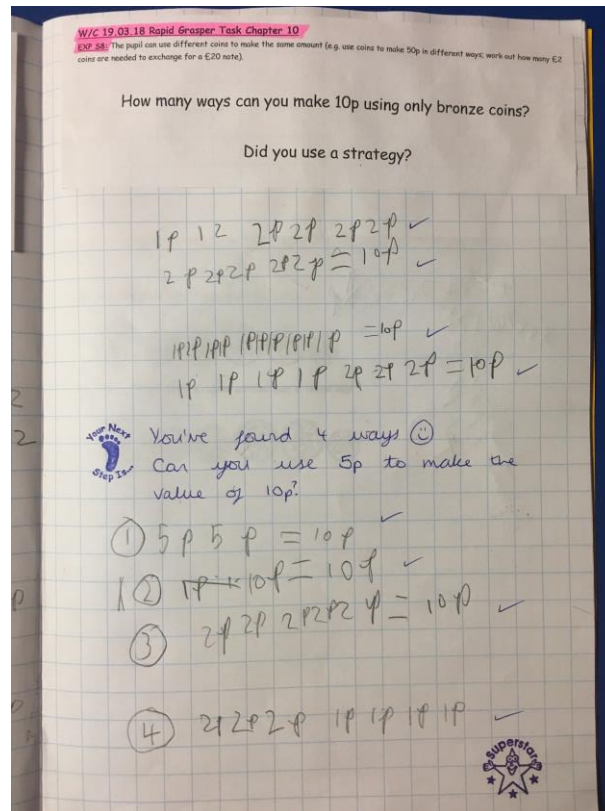 W/C 19.03.18 Rapid Grasper Task Chapter 10
EXP S8: The pupil can use different coins to make the same amount (e.g. use coins to make 50p in different ways; work out how many £2
coins are needed to exchange for a £20 note).
How many ways can you make 10p using only bronze coins?
Did you use a strategy?
1p 12 2p 2p 2p 2p ✓
2p 2p 2p 2p 2p = 10p ✓
1p 1p 1p 1p 1p 1p 1p 1p 1p 1p = 10p ✓
1p 1p 1p 1p 2p 2p 2p = 10p ✓
Your Next
Step Is...
You've found 4 ways ☺
Can you use 5p to make the
value of 10p?
① 5p 5p = 10p ✓
② 10p = 10p ✓
③ 2p 2p 2p 2p 2p = 10p ✓
④ 2p 2p 2p 1p 1p 1p 1p ✓
Superstar